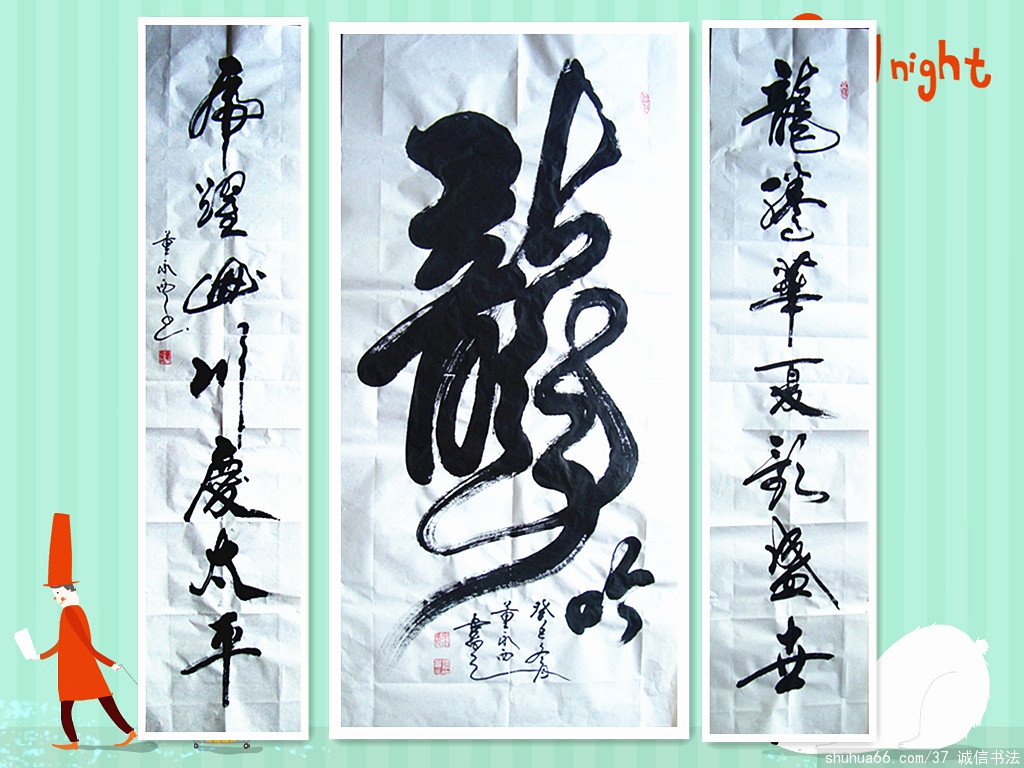 night
龍騰華夏歌盛世
龍吟
癸巳冬月
董永西
書之
虎躍川慶太平
董永西書
shuhua66.com/37 诚信书法